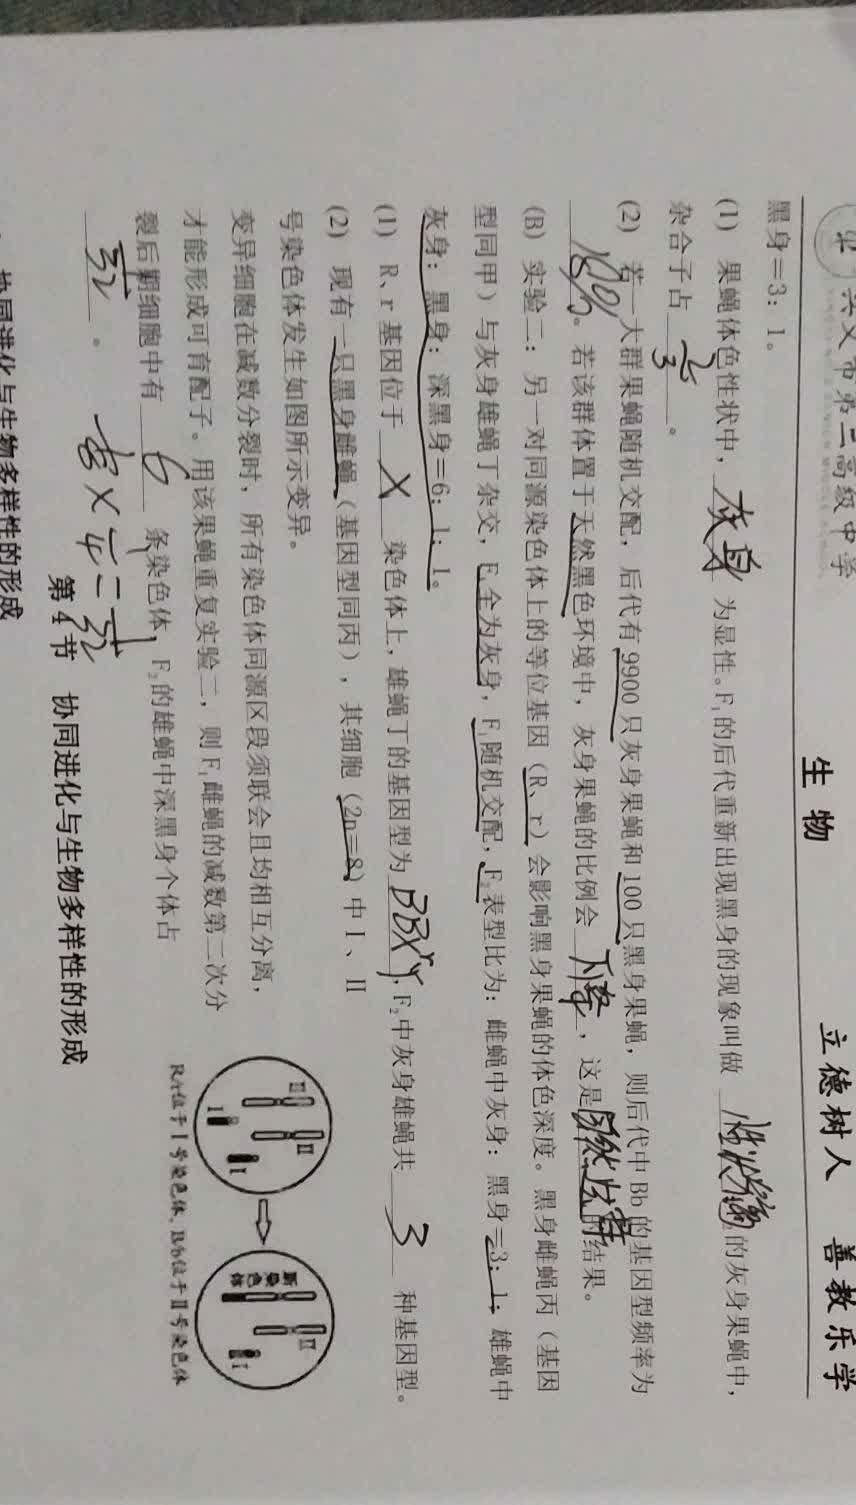 兴义市第三高级中学
生物
立德树人 善教乐学
黑身=3：1。
(1) 果蝇体色性状中，灰身为显性。F₁的后代重新出现黑身的现象叫做性状分离的灰身果蝇中，
杂合子占2/3。
(2) 若一大群果蝇随机交配，后代有9900只灰身果蝇和100只黑身果蝇，则后代中Bb的基因型频率为
18%。若该群体置于天然黑色环境中，灰身果蝇的比例会下降，这是自然选择的结果。
(B) 实验二：另一对同源染色体上的等位基因（R、r）会影响黑身果蝇的体色深度。黑身雌蝇丙（基因
型同甲）与灰身雄蝇丁杂交，F₁全为灰身，F₁随机交配，F₂表型比为：雌蝇中灰身：黑身=3：1；雄蝇中
灰身：黑身：深黑身=6：1：1。
(1) R、r基因位于X染色体上，雄蝇丁的基因型为BBXʳY，F₂中灰身雄蝇共3种基因型。
(2) 现有一只黑身雌蝇（基因型同丙），其细胞（2n=8）中Ⅰ、Ⅱ
号染色体发生如图所示变异。
变异细胞在减数分裂时，所有染色体同源区段须联会且均相互分离，
才能形成可育配子。用该果蝇重复实验二，则F₁雌蝇的减数第二次分
裂后期细胞中有6条染色体，F₂的雄蝇中深黑身个体占
1/32。
1/8×1/4=1/32
Ⅱ Ⅱ Ⅰ Ⅰ
新染色体 Ⅱ Ⅰ
R、r位于Ⅰ号染色体、B、b位于Ⅱ号染色体
第4节 协同进化与生物多样性的形成
协同进化与生物多样性的形成